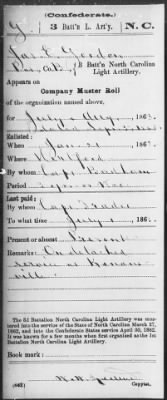 (Confederate.)
G 3 Batt'n L. Art'y. N. C.
Jas. L. Gordon
Pvt, Co. G, 3 Batt'n North Carolina
Light Artillery.
Appears on
Company Muster Roll
of the organization named above,
for July & Aug, 186
Enlisted:
When Jan 21, 186
Where
By whom Capt
Period
Last paid:
By whom Capt
To what time July 1, 186
Present or absent Present
Remarks: On detached
service at Kenans-
ville.
The 3d Battalion North Carolina Light Artillery was mustered
into the service of the State of North Carolina March 17,
1862, and into the Confederate States service April 30, 1862.
It was known for a few months when first organized as the 1st
Battalion North Carolina Light Artillery.
Book mark:
(642)
Copyist.